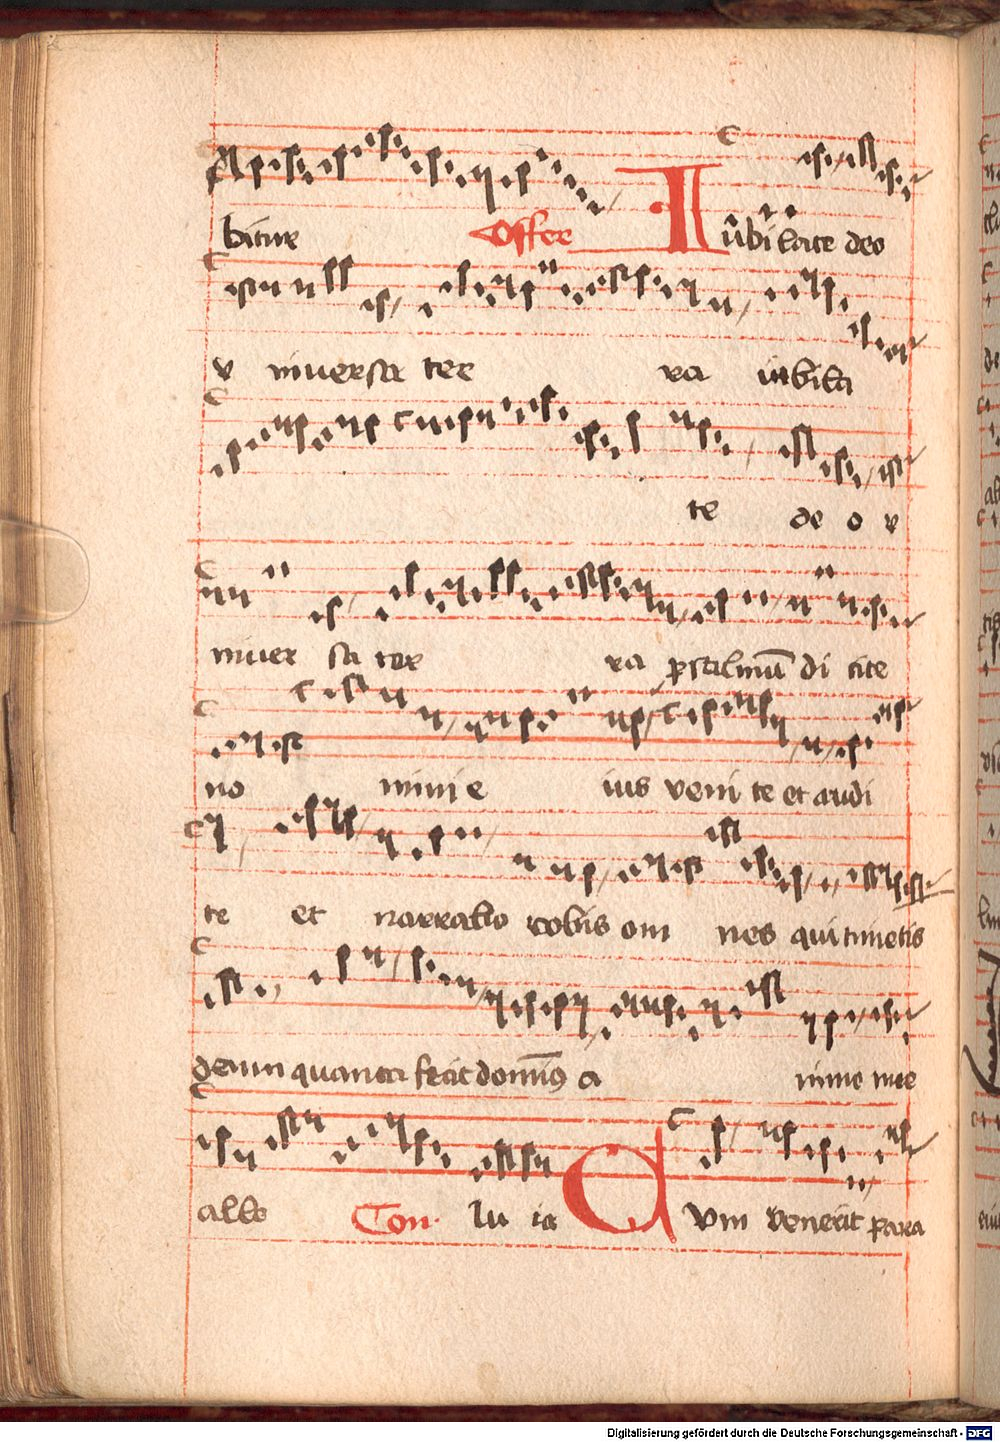 bitur Offer Iubilate deo
v niuersa ter ra iubila
te de o v
niuer sa ter ra psalmū di cite
no mini e ius veni te et audi
te et narrabo vobis om nes qui timetis
deum quanta fecit domin⁹ a nime mee
alle Con lu ia Cum venerit para
Digitalisierung gefördert durch die Deutsche Forschungsgemeinschaft - DFG